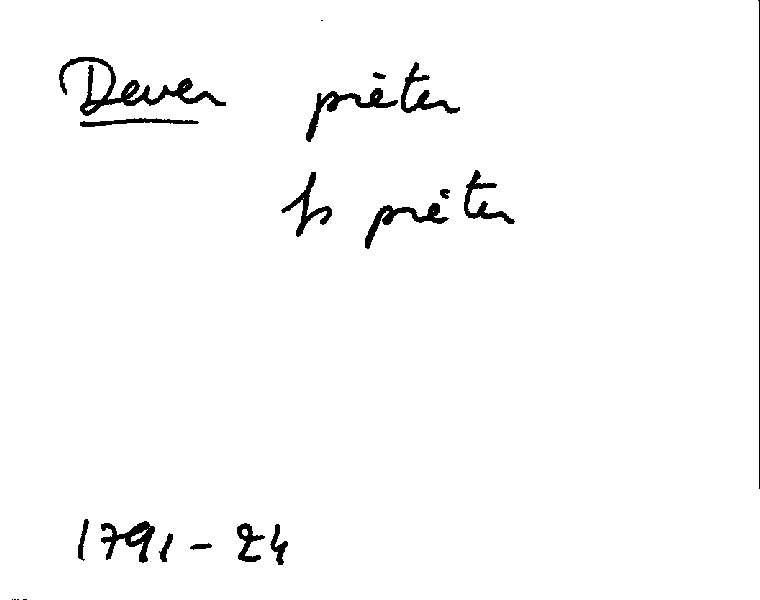 Dever prêter
prêter
1791-24